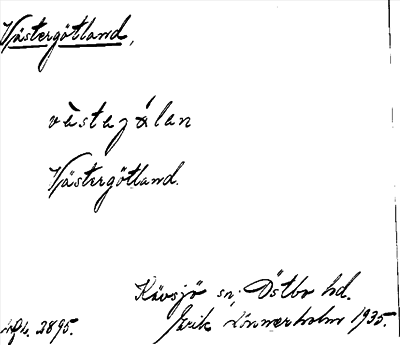 Västergötland,
västejálan
Västergötland.
Kävsjö sn; Östbo hd.
2895. Erik Lönnerholm 1935.